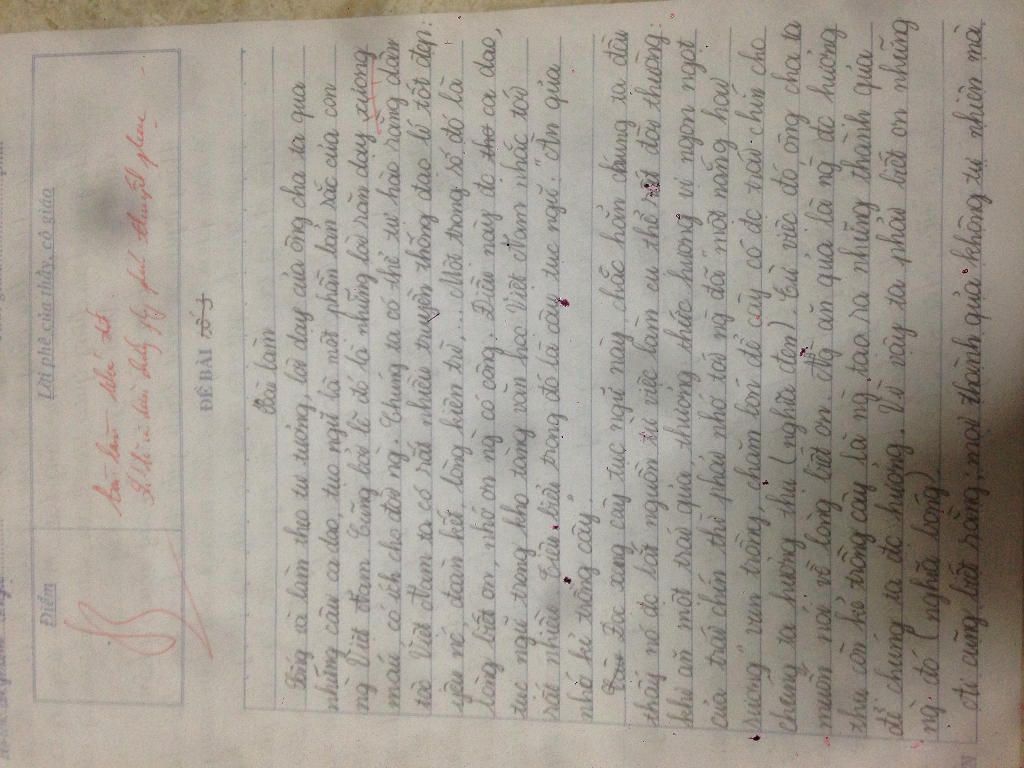 Điểm
Lời phê của thầy, cô giáo
Bài làm
ĐỀ BÀI
Bài làm
Sống và làm theo tư tưởng, lời dạy của ông cha ta qua
những câu ca dao, tục ngữ là một phần bản sắc của con
ng Việt Nam. Cũng bởi lẽ đó là những lời răn dạy xương
máu có ích cho đời ng. Chúng ta có thể tự hào rằng dân
tộc Việt Nam ta có rất nhiều truyền thống đạo lí tốt đẹp:
yêu nc, đoàn kết, lòng kiên trì,... Một trong số đó là
lòng biết ơn, nhớ ơn ng có công. Điều này đc thơ ca dao,
tục ngữ trong kho tàng văn học Việt Nam nhắc tới
rất nhiều. Tiêu biểu trong đó là câu tục ngữ: "Ăn quả
nhớ kẻ trồng cây"
Đọc xong câu tục ngữ này, chắc hẳn chúng ta đều
thấy nó đc bắt nguồn từ việc làm cụ thể rất đời thường:
khi ăn một trái quả, thưởng thức hương vị ngon ngọt
của trái chín thì phải nhớ tới ng đã "một nắng hai
sương" vun trồng, chăm bón để cây có đc trái chín cho
chúng ta hưởng thụ (nghĩa đen). Từ việc đó ông cha ta
muốn nói về lòng biết ơn. ăn quả là ng đc hưởng
thụ còn kẻ trồng cây là ng tạo ra những thành quả
để chúng ta đc hưởng. Vì vậy ta phải biết ơn những
ng đó (nghĩa bóng)
Ai cũng biết rằng, mọi thành quả không tự nhiên mà